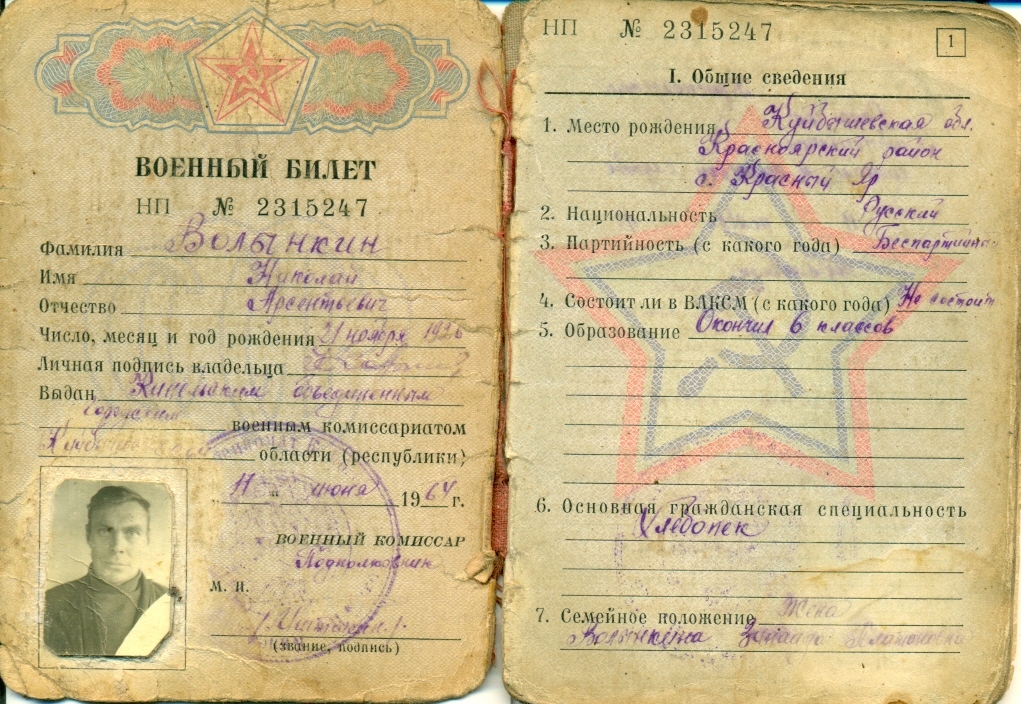 ВОЕННЫЙ БИЛЕТ
НП № 2315247
Фамилия Волынкин
Имя Николай
Отчество Арсентьевич
Число, месяц и год рождения 21 ноября 1926
Личная подпись владельца
Выдан Кинельским объединенным
городским военным комиссариатом
области (республики)
„ 11 “ июня 1964 г.
ВОЕННЫЙ КОМИССАР
Подполковник
М. П.
(звание, подпись)
НП № 2315247
1
I. Общие сведения
1. Место рождения Куйбышевская обл.
Красноярский район
с. Красный Яр
2. Национальность Русский
3. Партийность (с какого года) Беспартийн
4. Состоит ли в ВЛКСМ (с какого года) Не состоит
5. Образование Окончил 6 классов
6. Основная гражданская специальность
Хлебопек
7. Семейное положение Жена
Волынкина